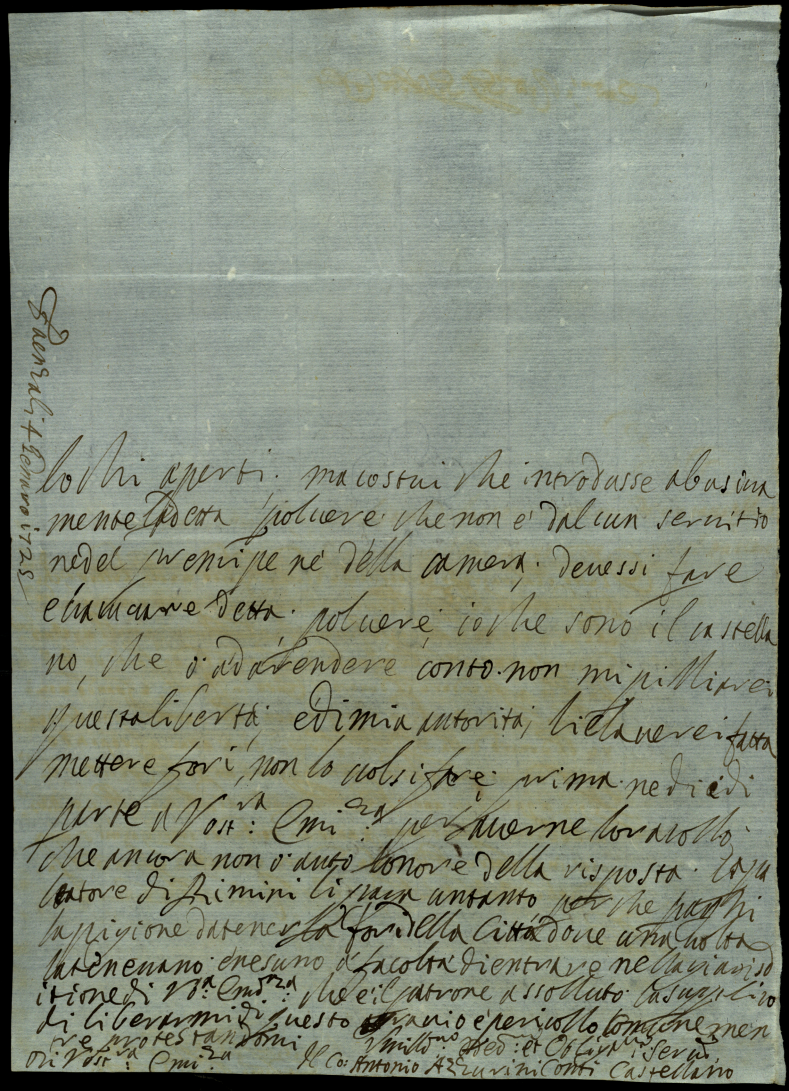 lochi aperti. ma costui che introdusse abusiva
mente la detta polvere che non e' d'alcun servitio
ne del prencipe ne della camera, devessi fare
detta polvere, io che sono il castella
no, che ò da rendere conto non mi pilliarei
questa libertà, e di mia autorità, li el averei fatta
mettere fori, non lo volsi fare prima ne diedi
parte a Vost:ra Emi:nza per averne l'oracollo
che ancora non ò auto l'onore della risposta.
di Rimini li un tanto perche paghi
la pigione da tenerla fori della Città dove una volta
la tenevano e nesuno à facoltà di entrare nella giurisd
itione di V:a Emi:nza che è il patrone assolluto la supplico
di liberarmi di questo e pericollo comune men
tre protestandomi Umill:mo Dev: et Oblig:mo Serv:
Di Vost:ra Emi:za Il Co: Antonio Azzurini Conti Castellano
Gennaro 1725